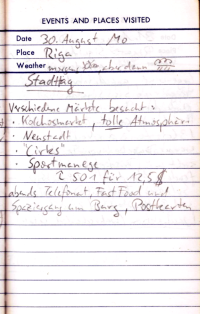 EVENTS AND PLACES VISITED
Date 30. August Mo
Place Riga
Weather morgens aber dann
Stadttag
Verschiedene Märkte besucht:
· Kolchosmarkt, tolle Atmosphäre
· Neustadt
· "Cirks"
· Sportmanege
2 501 für 12,5 $
abends Telefonat, Fast Food und
Spaziergang um Burg, Postkarten